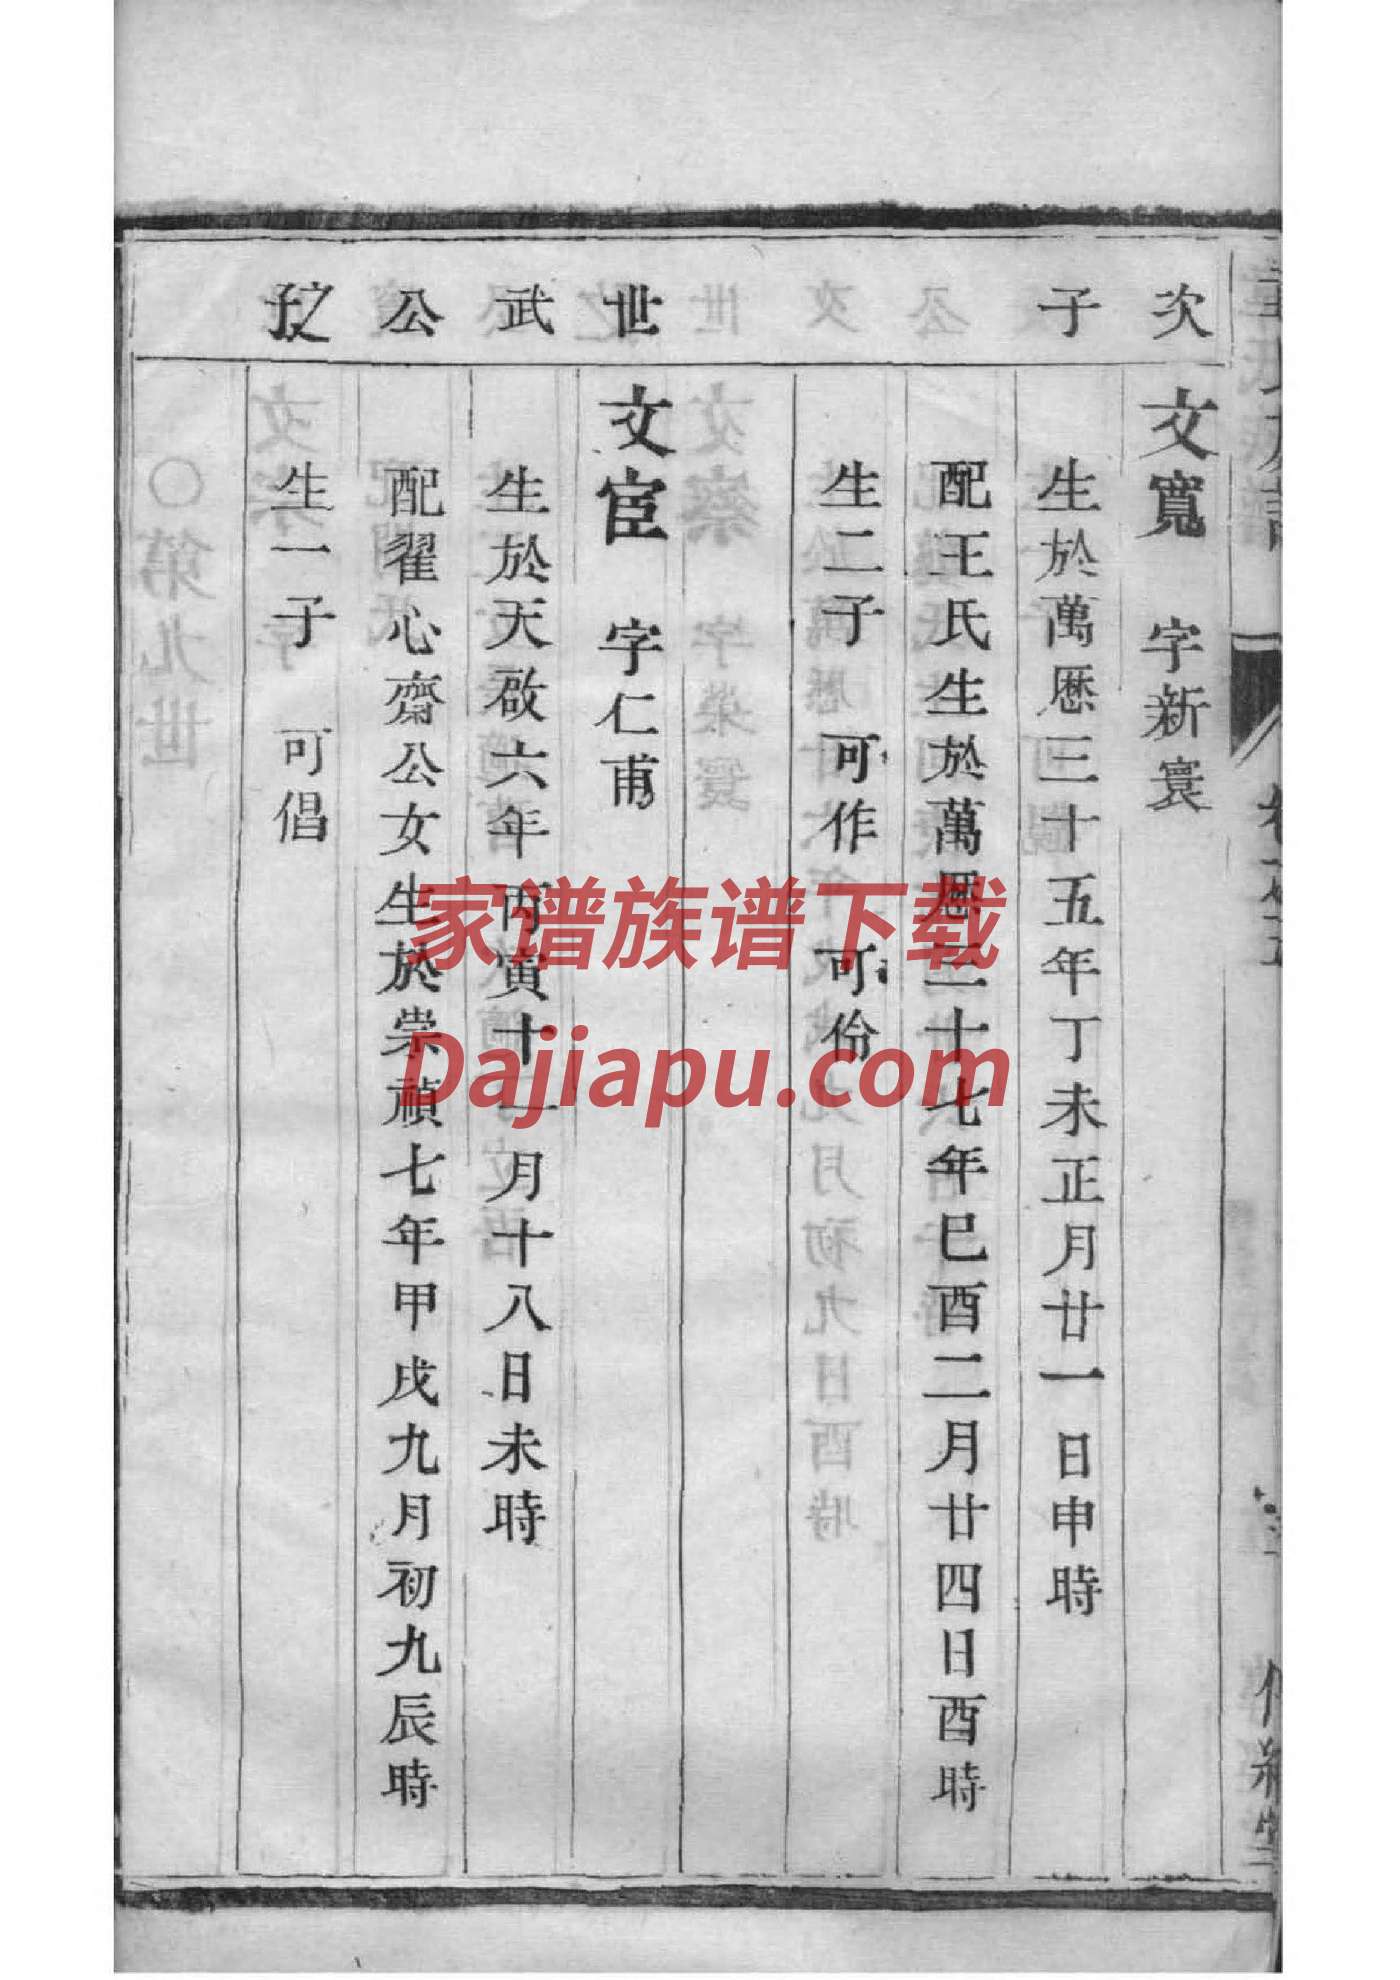 次
文寬 字新寰
子
生於萬厯三十五年丁未正月廿一日申時
配王氏生於萬厯三十七年巳酉二月廿四日酉時
生二子 可作 可份
世
文宦 字仁甫
武
生於天啟六年丙寅十一月十八日未時
公
配翟心齋公女生於崇禎七年甲戌九月初九辰時
之子
生一子 可倡
家谱族谱下载
Dajiapu.com